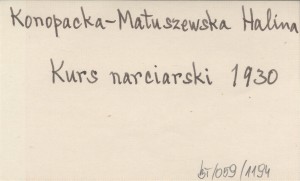 Konopacka-Matuszewska Halina
Kurs narciarski 1930
bT/059/1194